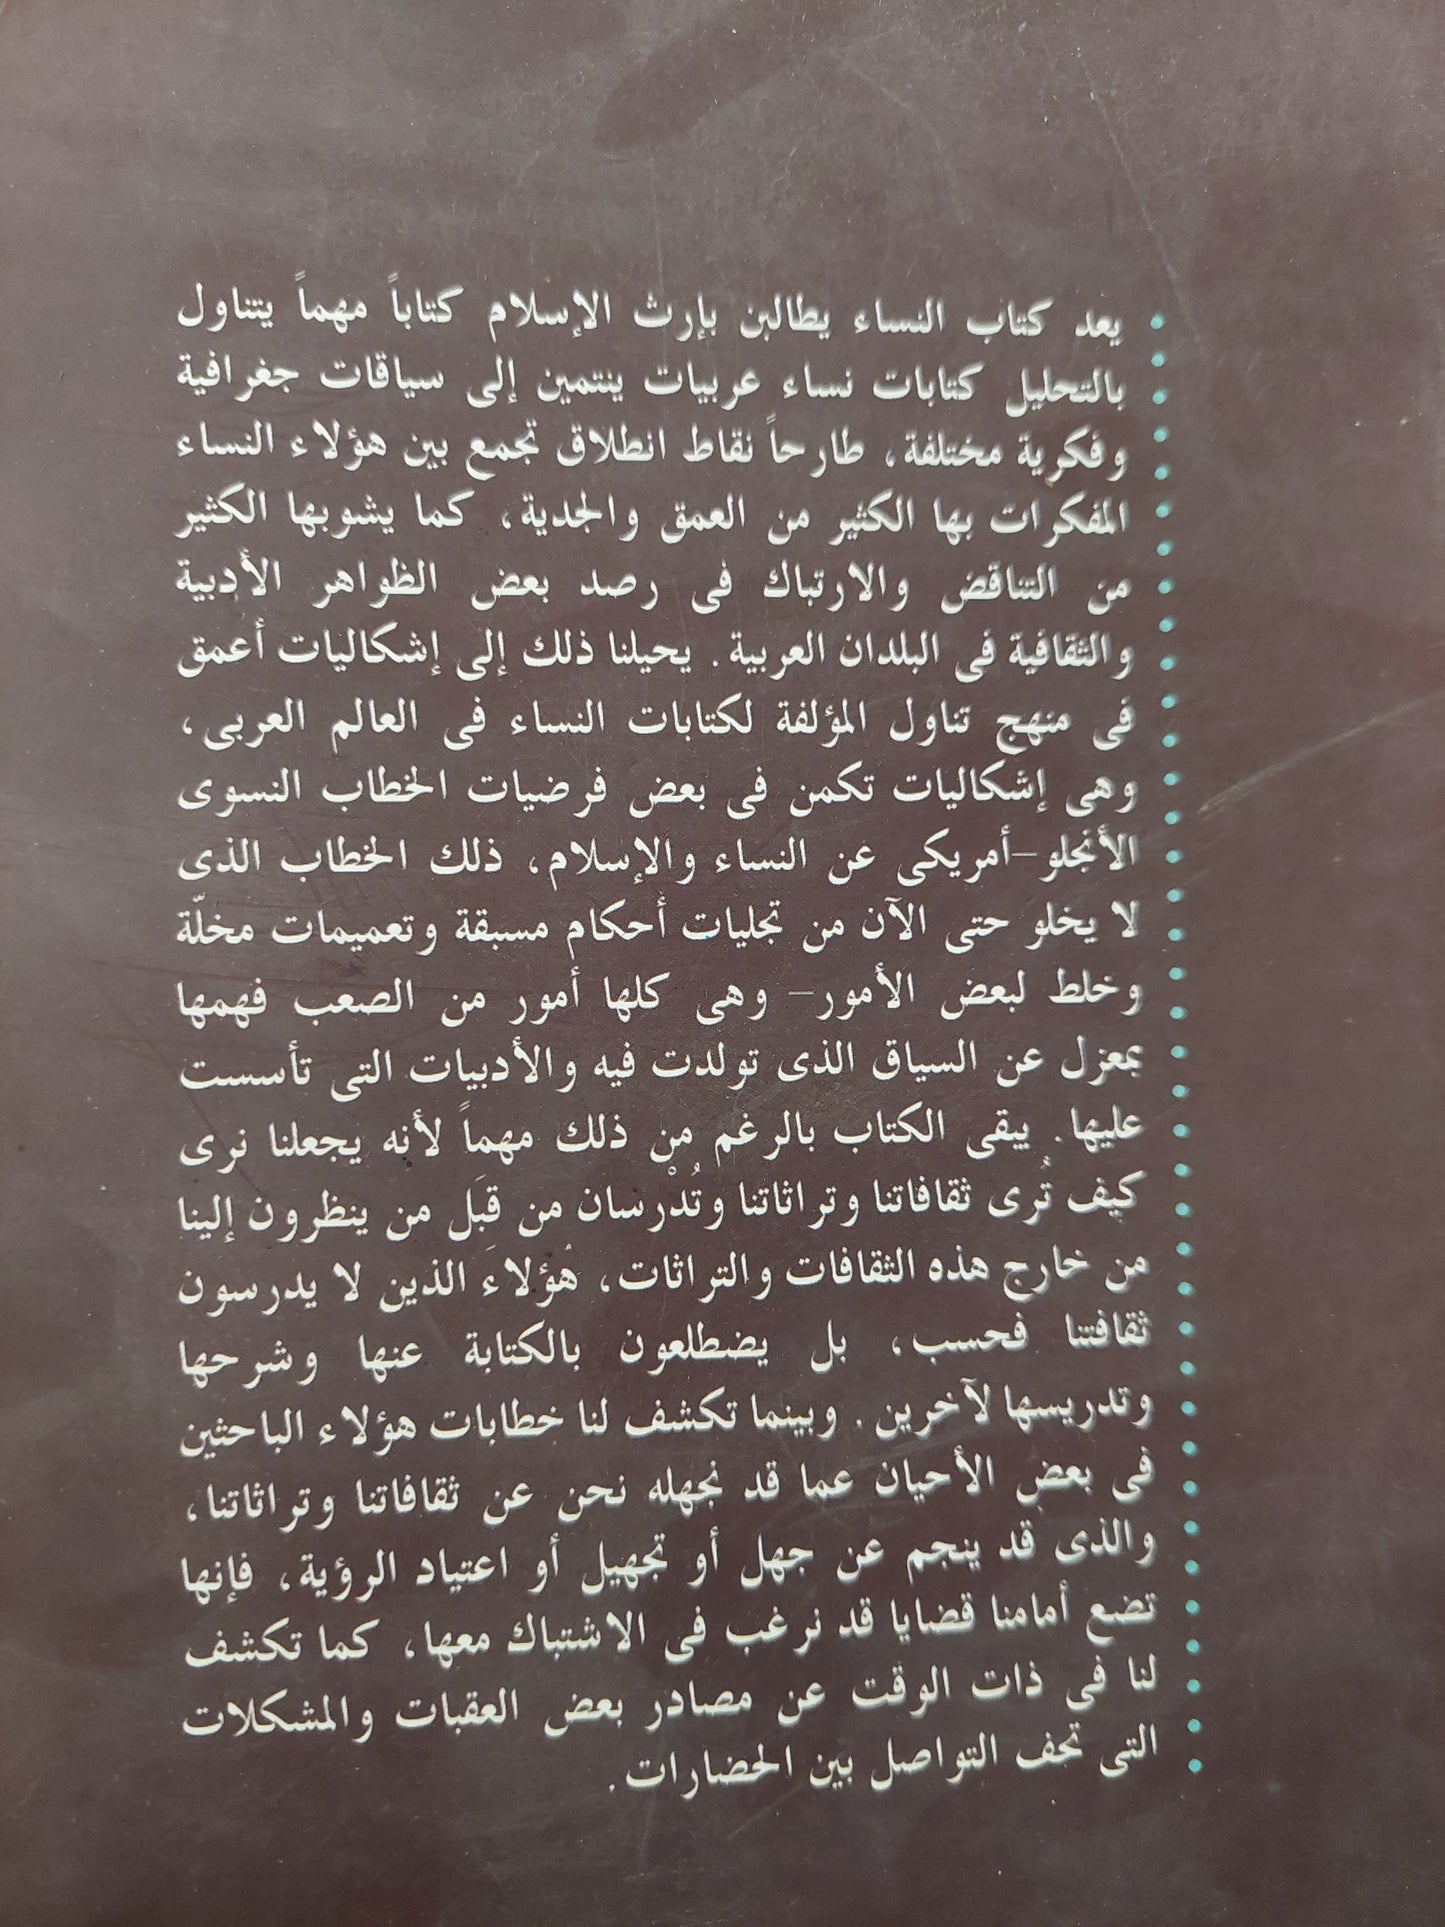 يعد كتاب النساء يطالبن بإرث الإسلام كتاباً مهماً يتناول
بالتحليل كتابات نساء عربيات ينتمين إلى سياقات جغرافية
وفكرية مختلفة، طارحاً نقاط انطلاق تجمع بين هؤلاء النساء
المفكرات بها الكثير من العمق والجدية، كما يشوبها الكثير
من التناقض والارتباك فى رصد بعض الظواهر الأدبية
والثقافية فى البلدان العربية. يحيلنا ذلك إلى إشكاليات أعمق
فى منهج تناول المؤلفة لكتابات النساء فى العالم العربى،
وهى إشكاليات تكمن فى بعض فرضيات الخطاب النسوى
الأنجلو–أمريكى عن النساء والإسلام، ذلك الخطاب الذى
لا يخلو حتى الآن من تجليات أحكام مسبقة وتعميمات مخلّة
وخلط لبعض الأمور– وهى كلها أمور من الصعب فهمها
بمعزل عن السياق الذى تولدت فيه والأدبيات التى تأسست
عليها. يبقى الكتاب بالرغم من ذلك مهماً لأنه يجعلنا نرى
كيف تُرى ثقافاتنا وتراثاتنا وتُدْرسان من قبَل من ينظرون إلينا
من خارج هذه الثقافات والتراثات، هُؤلاَء الذين لا يدرسون
ثقافتنا فحسب، بل يضطلعون بالكتابة عنها وشرحها
وتدريسها لآخرين. وبينما تكشف لنا خطابات هؤلاء الباحثين
فى بعض الأحيان عما قد نجهله نحن عن ثقافاتنا وتراثاتنا،
والذى قد ينجم عن جهل أو تجهيل أو اعتياد الرؤية، فإنها
تضع أمامنا قضايا قد نرغب فى الاشتباك معها، كما تكشف
لنا فى ذات الوقت عن مصادر بعض العقبات والمشكلات
التى تحف التواصل بين الحضارات.